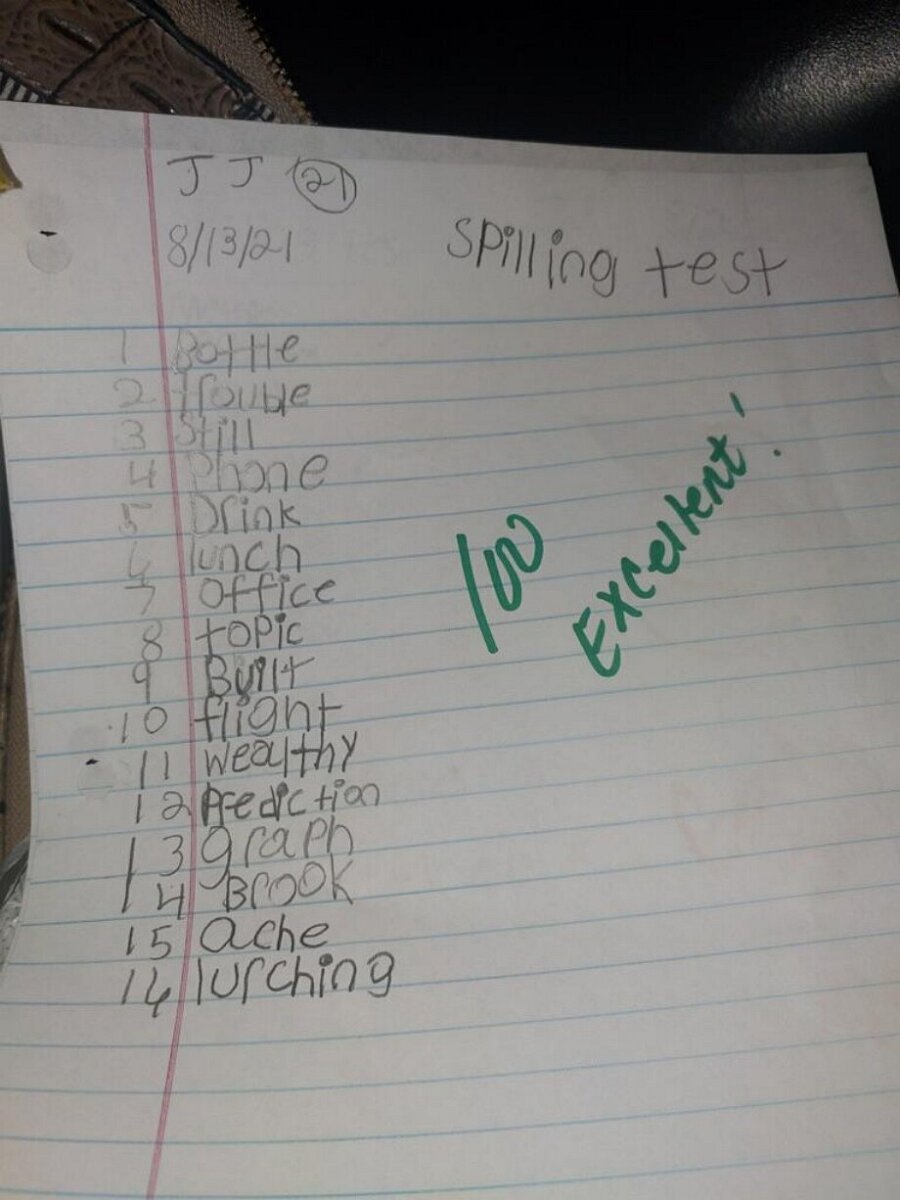 JJ 21
8/13/21
Spilling test
1 Bottle
2 Trouble
3 Still
4 Phone
5 Drink
6 lunch
7 office
8 topic
9 Built
10 flight
11 wealthy
12 Prediction
13 graph
14 Brook
15 ache
16 lurching
100
Excellent!